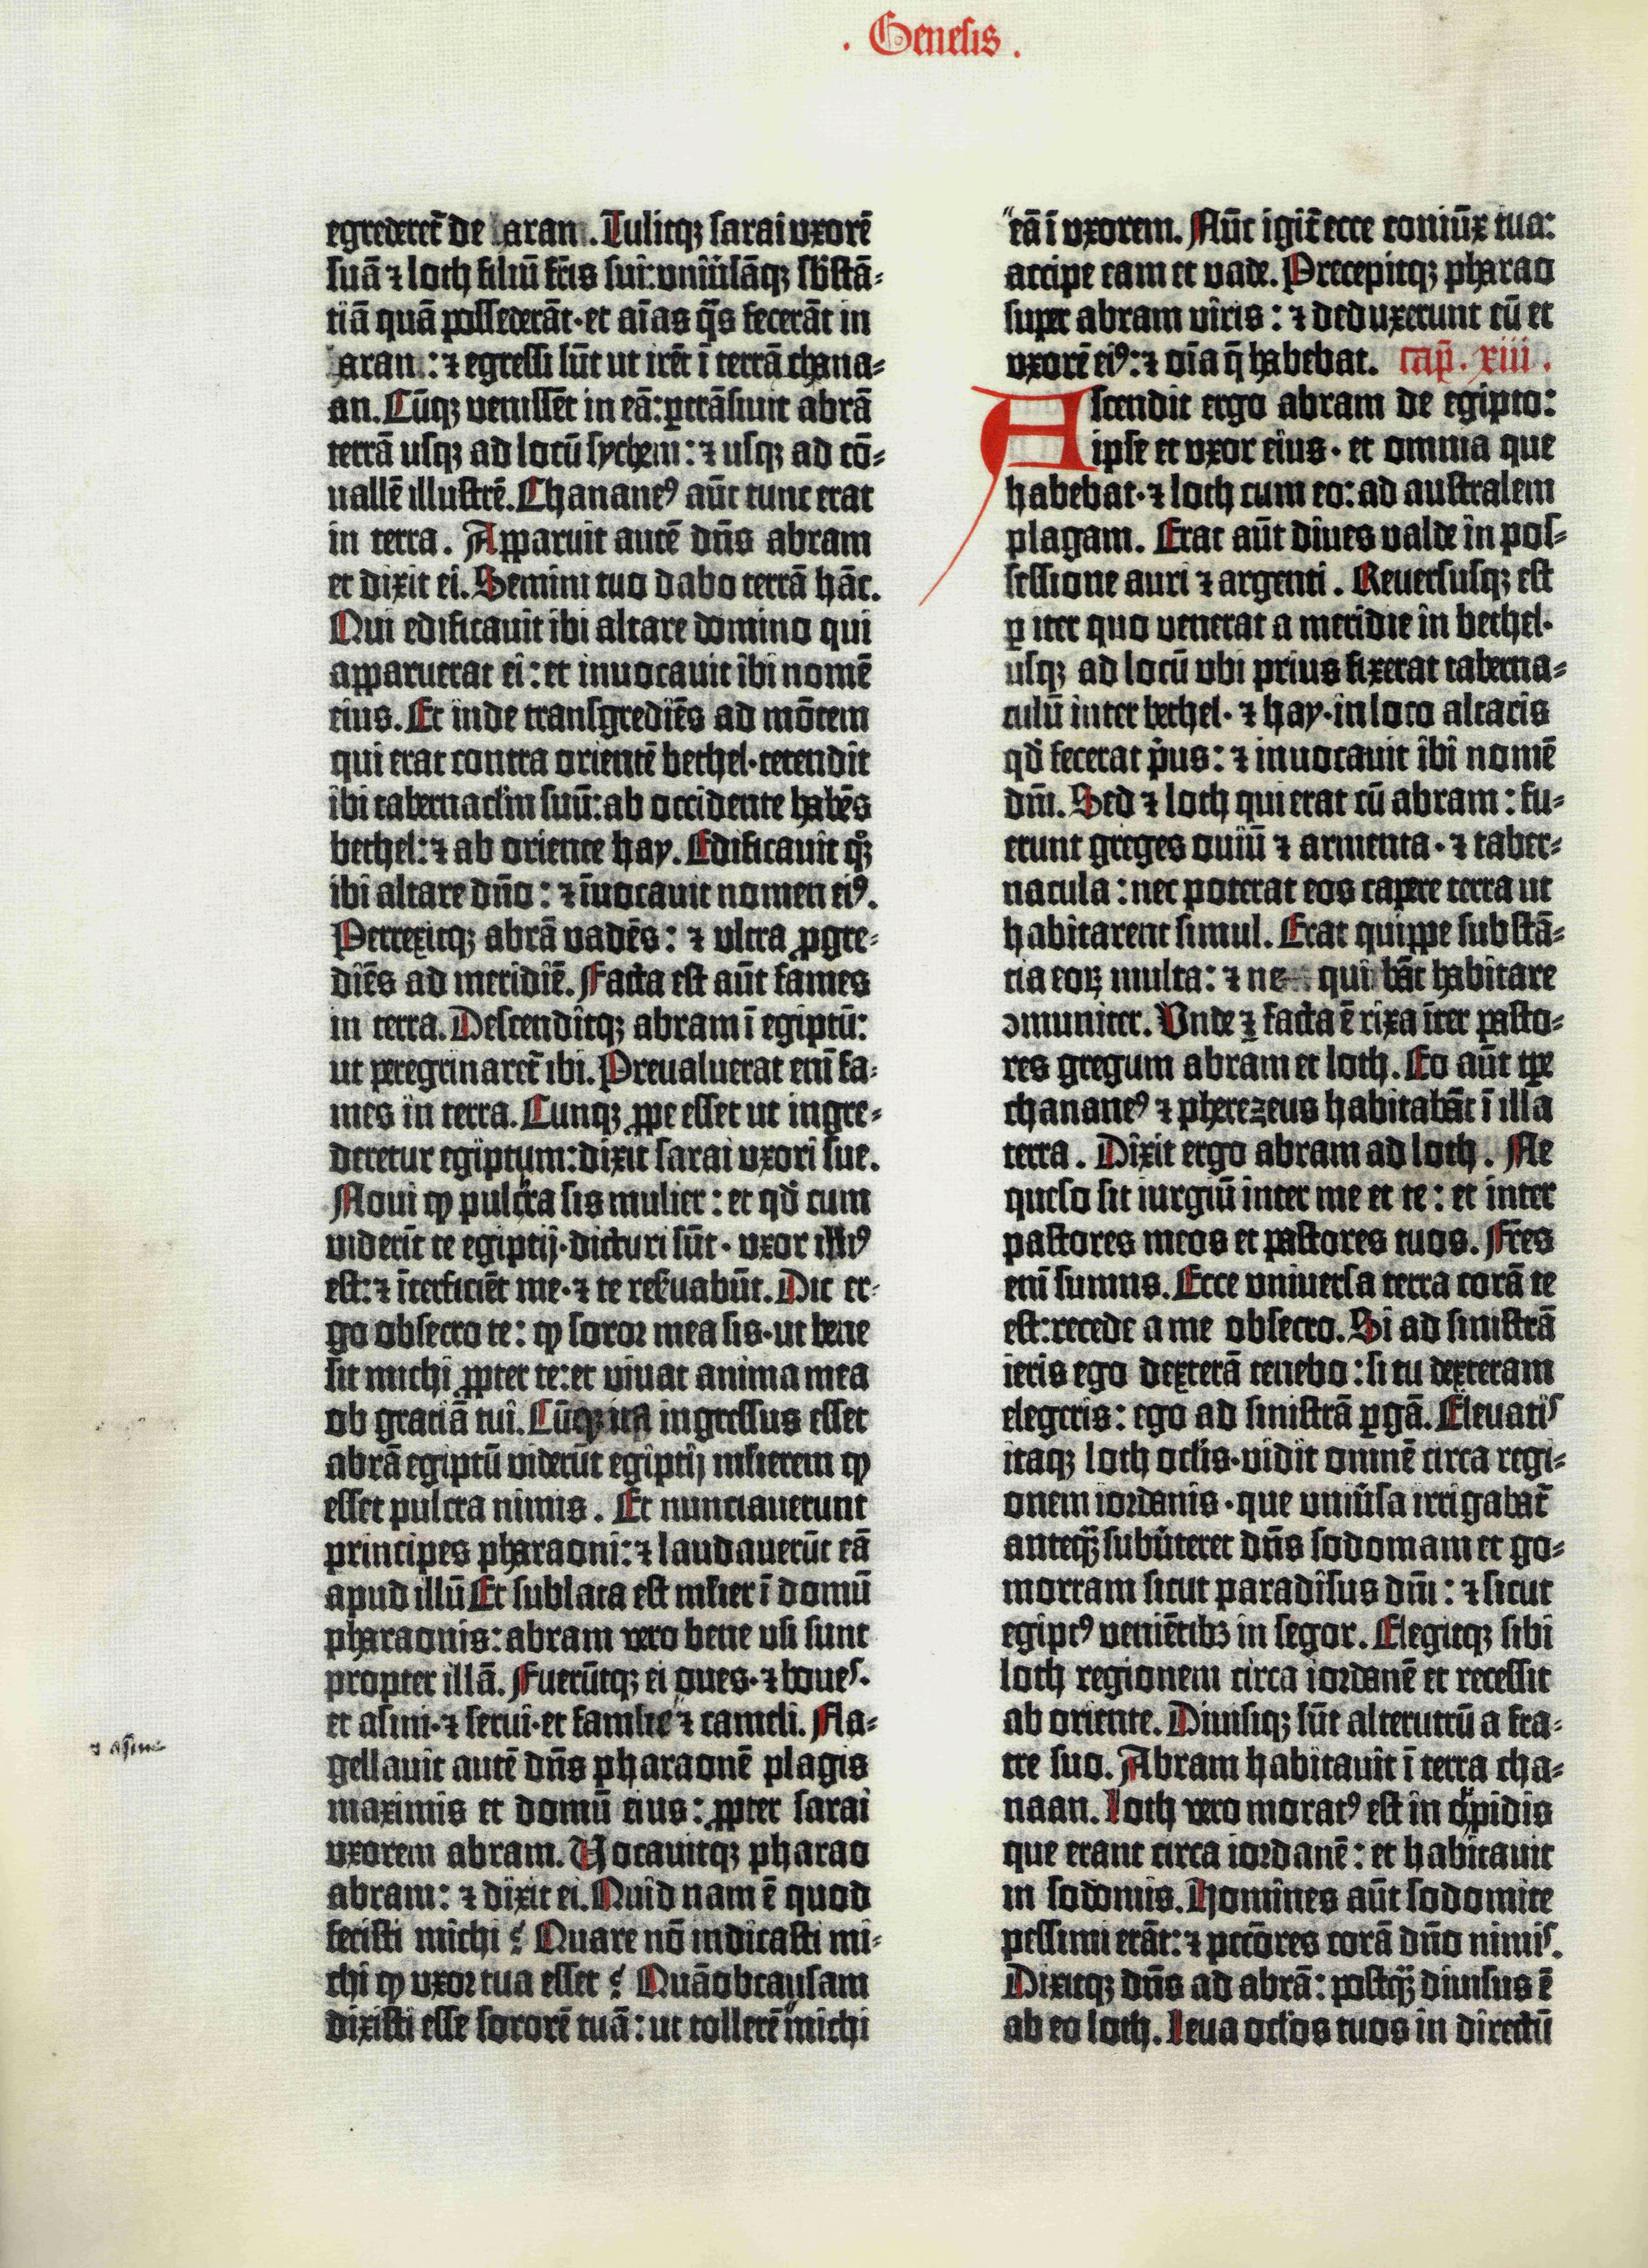 . Genesis .
egrederet̄ de aran. Tulitqꝫ sarai uxorē
suā ⁊ loth filiū fr̄is sui: uniūsāqꝫ sbstā-
tiā quā possederāt· et aīas q̄s fecerāt in
aran: ⁊ egressi sūt ut irēt ī terrā chana-
an. Cūqꝫ venissēt in eā: ꝑtrāsiuit abrā
terrā usqꝫ ad locū sychem: ⁊ usqꝫ ad cō-
uallē illustrē. Chananeꝰ aūt tunc erat
in terra. Apparuit autē dn̄s abram
et dixit ei. Semini tuo dabo terrā hāc.
Qui edificauit ibi altare domino qui
apparuerat ei: et inuocauit ibi nomē
eius. Et inde transgrediēs ad mōtem
qui erat contra orientē bethel· tetendit
ibi tabernaclm̄ suū: ab occidente habēs
bethel: ⁊ ab oriente hay. Edificauit qͦꝫ
ibi altare dn̄o: ⁊ īuocauit nomen eiꝰ.
Perrexitqꝫ abrā vadēs: ⁊ ultra ꝓgre-
diēs ad meridiē. Facta est aūt fames
in terra. Descenditqꝫ abram ī egiptū:
ut peregrinaret̄ ibi. Preualuerat enī fa-
mes in terra. Cunqꝫ ꝓpe esset ut ingre-
deretur egiptum: dixit sarai uxori sue.
Noui ꝙ pulcra sis mulier: et qd̄ cum
viderīt te egiptij· dicturi sūt· uxor illiꝰ
est: ⁊ īterficiēt me· ⁊ te reẜuabūt. Dic er-
go obsecro te: ꝙ soror mea sis· ut bene
sit michi ꝓpter te: et viuat anima mea
ob gratiā tui. Cūqꝫ ita ingressus esset
abrā egiptū viderūt egiptij ml̄ierem ꝙ
esset pulcra nimis. Et nunciauerunt
principes pharaoni: ⁊ laudauerūt eā
apud illū Et sublata est ml̄ier ī domū
pharaonis: abram vero bene usi sunt
propter illā. Fuerūtqꝫ ei oues· ⁊ boues·
et asini· ⁊ serui· et famule ⁊ cameli. Fla-
⁊ asine
gellauit autē dn̄s pharaonē plagis
maximis et domū eius: ꝓpter sarai
uxorem abram. Vocauitqꝫ pharao
abram: ⁊ dixit ei. Quid nam ē quod
fecisti michi? Quare nō indicasti mi-
chi ꝙ uxor tua esset? Quāobcausam
dixisti esse sororē tuā: ut tollerē michi
eā ī uxorem. Nūc igit̄ ecce coniūx tua:
accipe eam et vade. Precepitqꝫ pharao
super abram viris: ⁊ deduxerunt eū et
uxorē eiꝰ: ⁊ oīa q̄ habebat. cap̄. xiii.
Ascendit ergo abram de egipto:
ipse et uxor eius· et omnia que
habebat· ⁊ loth cum eo: ad australem
plagam. Erat aūt diues valde in pos-
sessione auri ⁊ argenti. Reuersusqꝫ est
ꝑ iter quo venerat a meridie in bethel·
usqꝫ ad locū ubi prius fixerat taberna-
culū inter bethel· ⁊ hay· in loco altaris
qd̄ fecerat p̄us: ⁊ inuocauit ibi nomē
dn̄i. Sed ⁊ loth qui erat cū abram: fu-
erunt greges ouiū ⁊ armenta· ⁊ taber-
nacula: nec poterat eos capere terra ut
habitarent simul. Erat quippe substā-
tia eoꝝ multa: ⁊ ne quibāt habitare
ꝯmuniter. Unde ⁊ facta ē rixa īter pasto-
res gregum abram et loth. Eo aūt tꝑe
chananeꝰ ⁊ pherezeus habitabāt ī illa
terra. Dixit ergo abram ad loth. Ne
queso sit iurgiū inter me et te: et inter
pastores meos et pastores tuos. Fr̄es
enī sumus. Ecce universa terra corā te
est: recede a me obsecro. Si ad sinistrā
ieris ego dexterā tenebo: si tu dexteram
elegeris: ego ad sinistrā ꝑgā. Eleuatis
itaqꝫ loth ocl̄is· vidit omnē circa regi-
onem iordanis· que uniūsa irrigabat̄
anteqꝫ̄ subūteret dn̄s sodomam et go-
morram sicut paradisus dn̄i: ⁊ sicut
egiptꝰ veniētibꝫ in segor. Elegitqꝫ sibi
loth regionem circa iordanē et recessit
ab oriente. Diuisiqꝫ sūt alterutrū a fra-
tre suo. Abram habitauit ī terra cha-
naan. loth vero moratꝰ est in oppidis
que erant circa iordanē: et habitauit
in sodomis. Homines aūt sodomite
pessimi erāt: ⁊ pctōres corā dn̄o nimis.
Dixitqꝫ dn̄s ad abrā: postqꝫ̄ diuisus ē
ab eo loth. leua ocl̄os tuos in directū